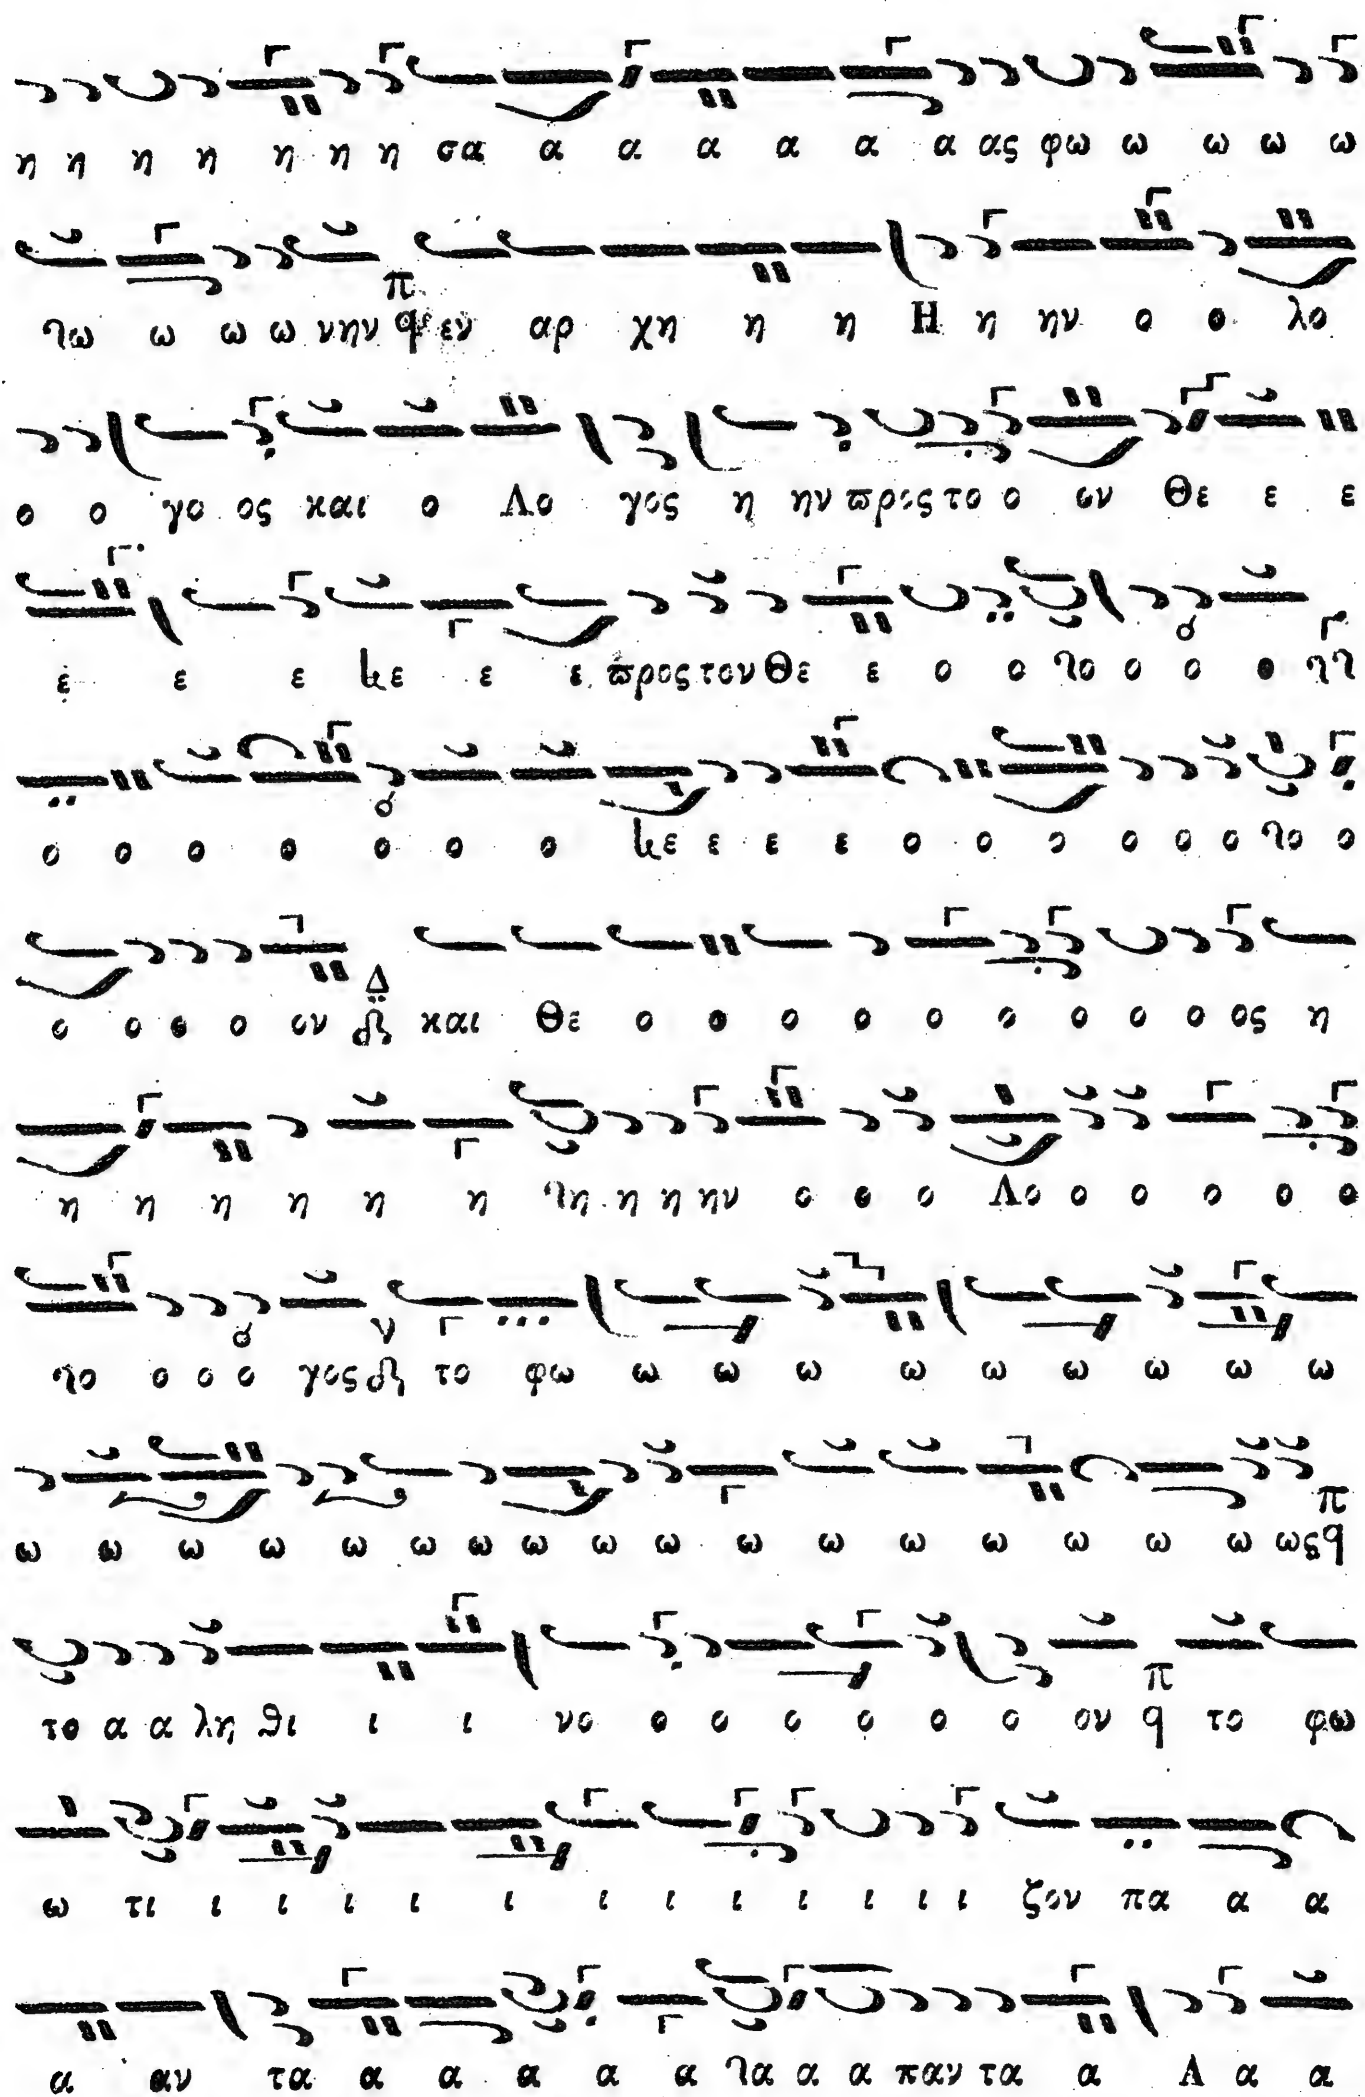 η η η η η η η σα α α α α α α ας φω ω ω ω ω
γω ω ω ω νην π q εν αρ χη η η Η η ην ο ο λο
ο ο γο ος και ο Λο γος η ην ϖρος το ο ον Θε ε ε
ε ε ε κε ε ε ϖρος τον Θε ε ο ο γο ο ο ο γγ
ο ο ο ο ο ο ο κε ε ε ε ο ο ο ο ο ο γο ο
ο ο ο ο ον Δ και Θε ο ο ο ο ο ο ο ο ο ος η
η η η η η η γη η η ην ο ο ο Λο ο ο ο ο ο
γο ο ο ο γος ν το φω ω ω ω ω ω ω ω ω ω
ω ω ω ω ω ω ω ω ω ω ω ω ω ω ω ω ω ως π q
το α α λη θι ι ι νο ο ο ο ο ο ο ον π q το φω
ω τι ι ι ι ι ι ι ι ι ι ι ι ι ζον πα α α
α αν τα α α α α α γα α α παν τα α Α α α